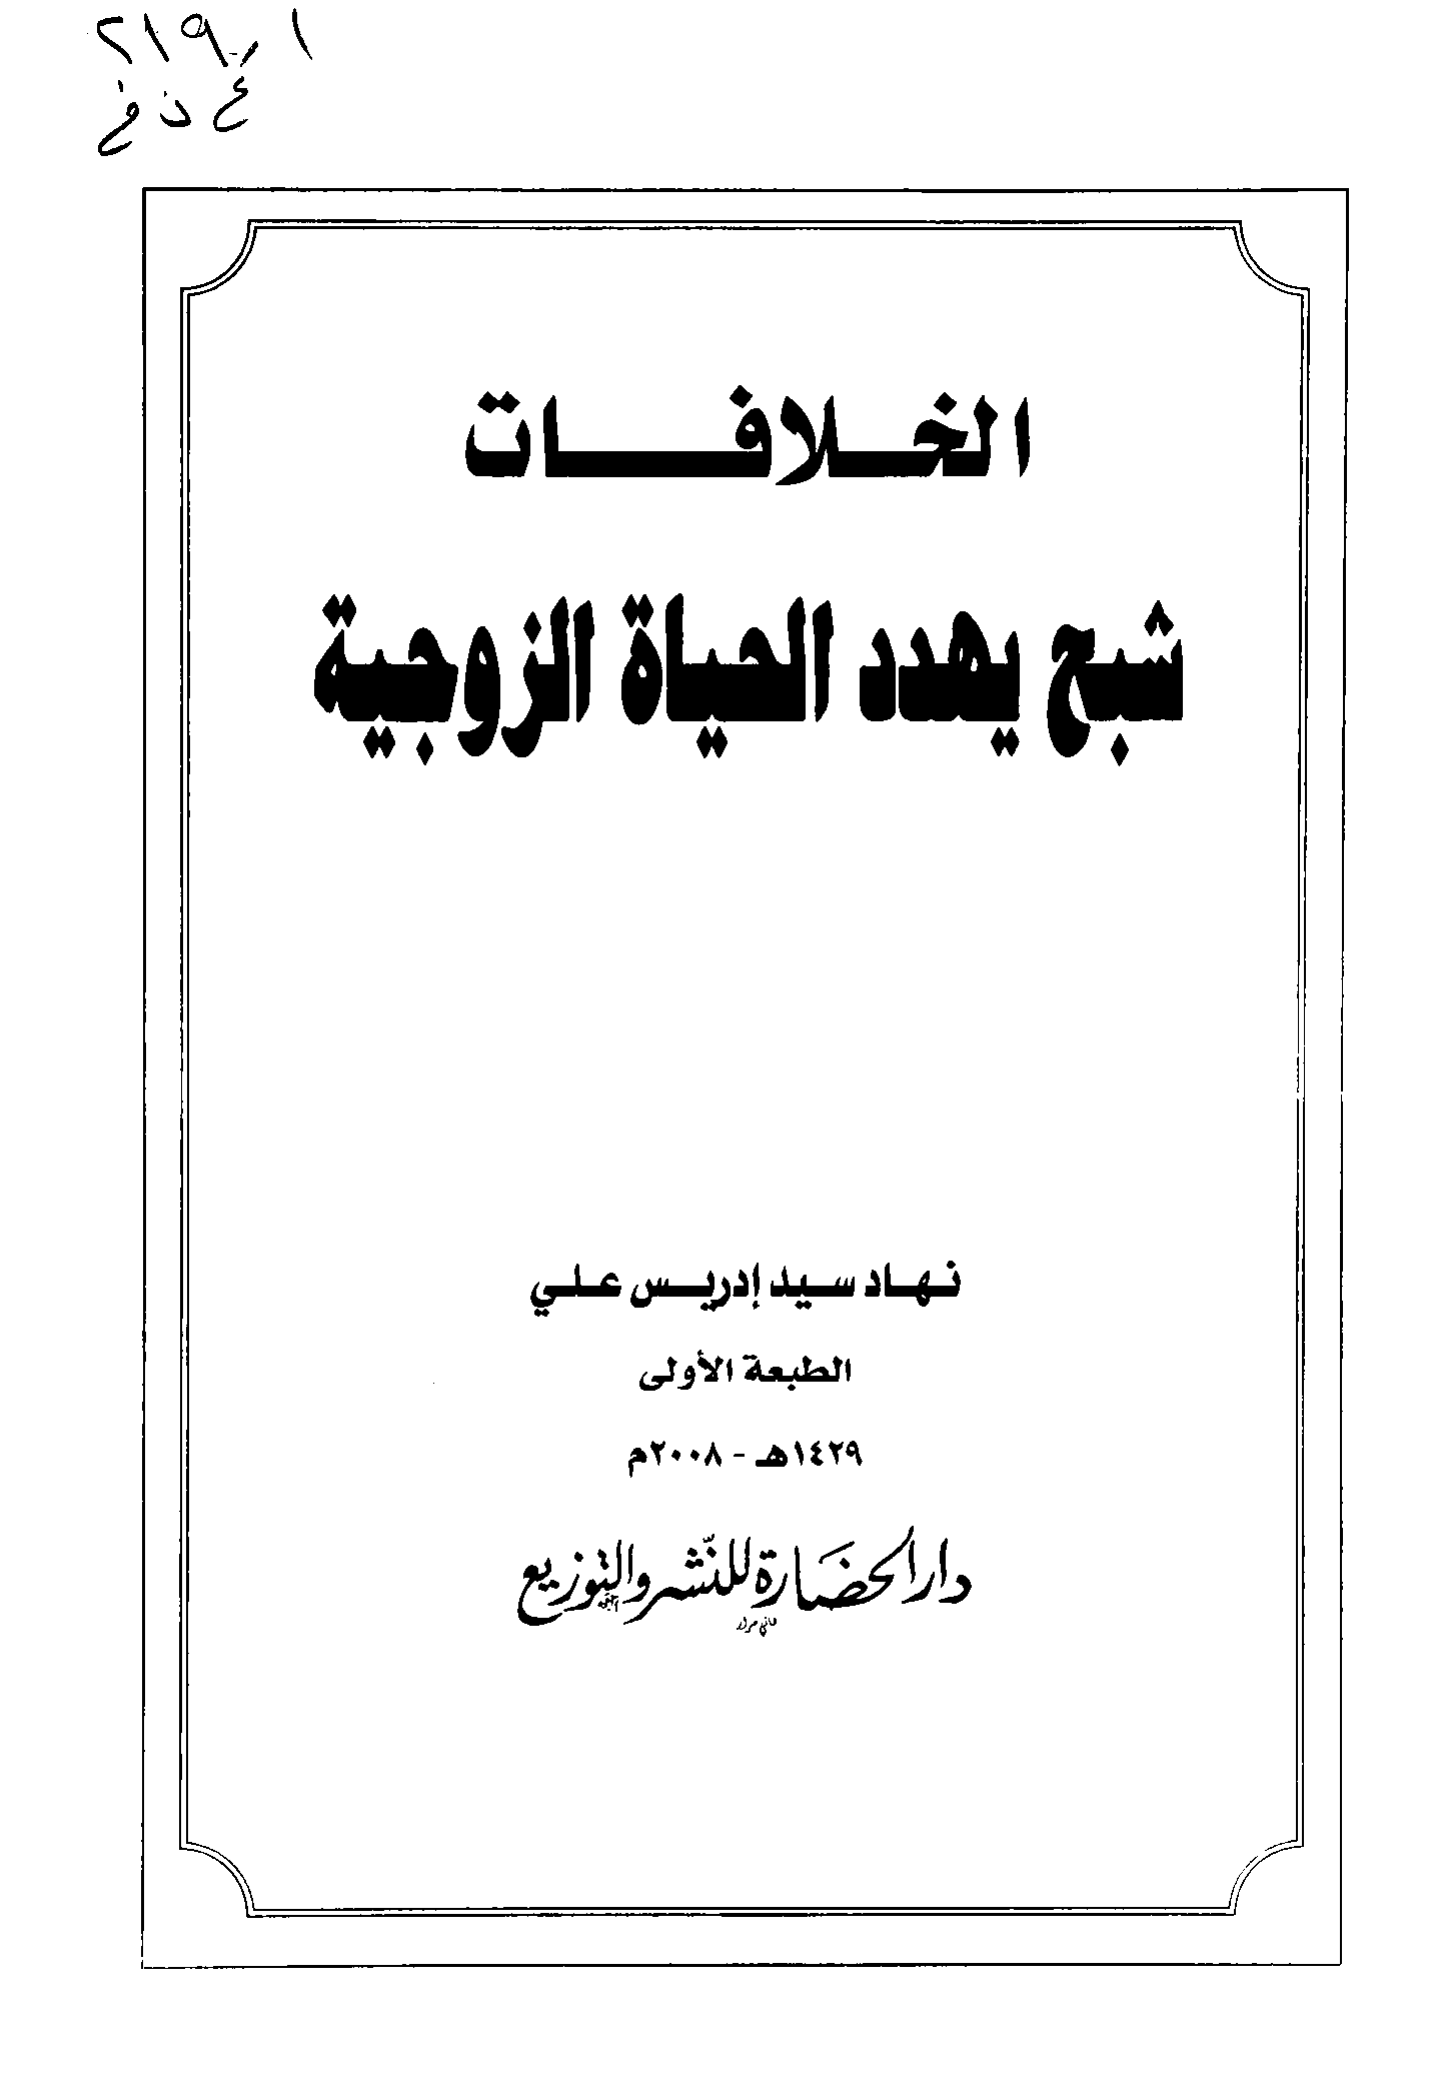 ٢١٩,١
ع ن خ
الخلافات
شبح يهدد الحياة الزوجية
نهاد سيد إدريس علي
الطبعة الأولى
١٤٢٩هـ - ٢٠٠٨م
دار الحضارة للنشر والتوزيع